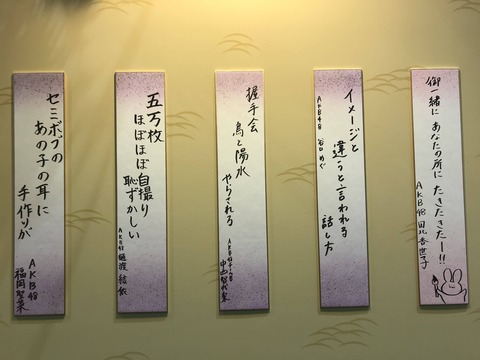 御一緒に
あなたの所に
たきたきたー!!
AKB48 田北香世子
イメージと
違うと言われる
話し方
AKB48 谷口めぐ
握手会
鳥と陽水
やらされる
中西智代梨
五万枚
ほぼほぼ自撮り
恥ずかしい
AKB48 樋渡結依
セミボブの
あの子の耳に
手作りが
AKB48
福岡聖菜